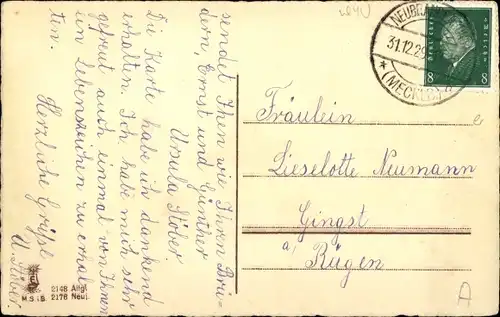 sendet Ihnen wie Ihren Brü-
dern, Ernst und Günther
Ursula Stöber
Die Karte habe ich dankend
erhalten. Ich habe mich sehr
gefreut auch einmal von Ihnen
ein Lebenszeichen zu erhal-
ten.
Herzliche Grüße
U. Stöber.
NEUB
31.12.29
* (MECKLB)
DEUTSCHES REICH
8 8
Fräulein
Lieselotte Neumann
Gingst
a/ Rügen
M.S.i.B. 2148 Allgl
2178 Neuj.
A